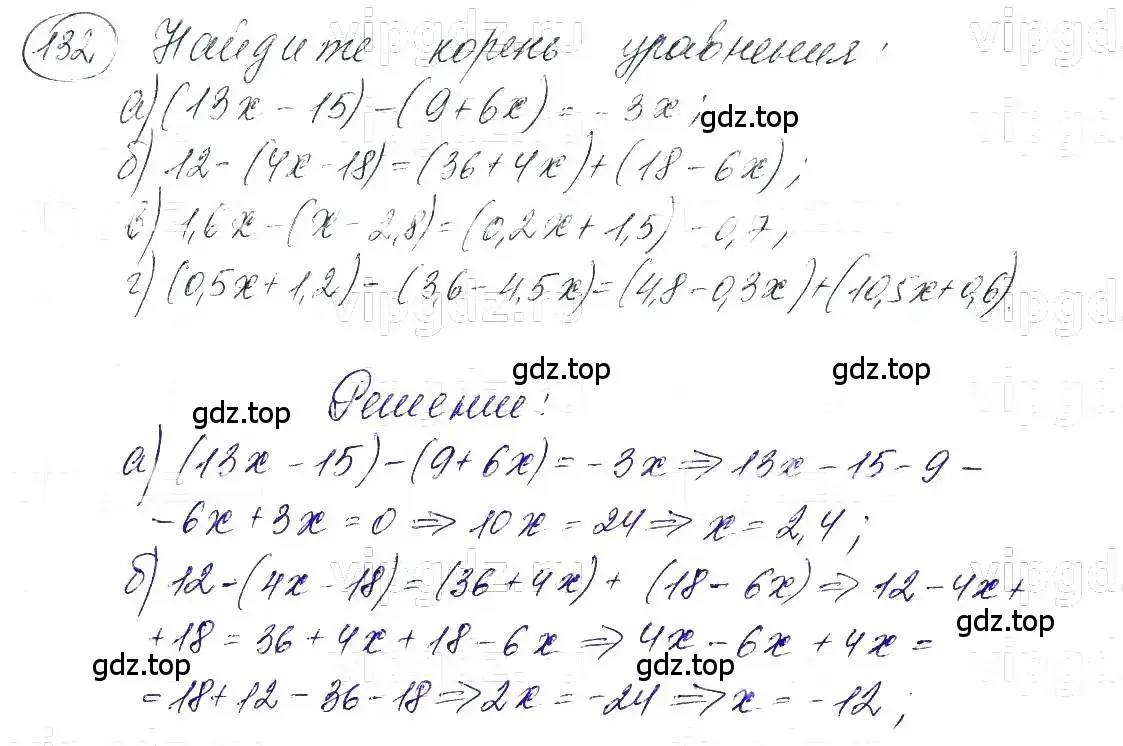 132 Найдите корень уравнения:
а) (13x - 15) - (9 + 6x) = - 3x;
gdz.top
б) 12 - (4x - 18) = (36 + 4x) + (18 - 6x);
в) 1,6x - (x - 2,8) = (0,2x + 1,5) - 0,7;
г) (0,5x + 1,2) - (3,6 - 4,5x) = (4,8 - 0,3x) + (10,5x + 0,6).
gdz.top gdz.top
gdz.top Решение:
а) (13x - 15) - (9 + 6x) = - 3x ⇒ 13x - 15 - 9 -
- 6x + 3x = 0 ⇒ 10x = 24 ⇒ x = 2,4;
б) 12 - (4x - 18) = (36 + 4x) + (18 - 6x) ⇒ 12 - 4x +
gdz.top
+ 18 = 36 + 4x + 18 - 6x ⇒ 4x - 6x + 4x =
gdz.top gdz.top
= 18 + 12 - 36 - 18 ⇒ 2x = -24 ⇒ x = -12;